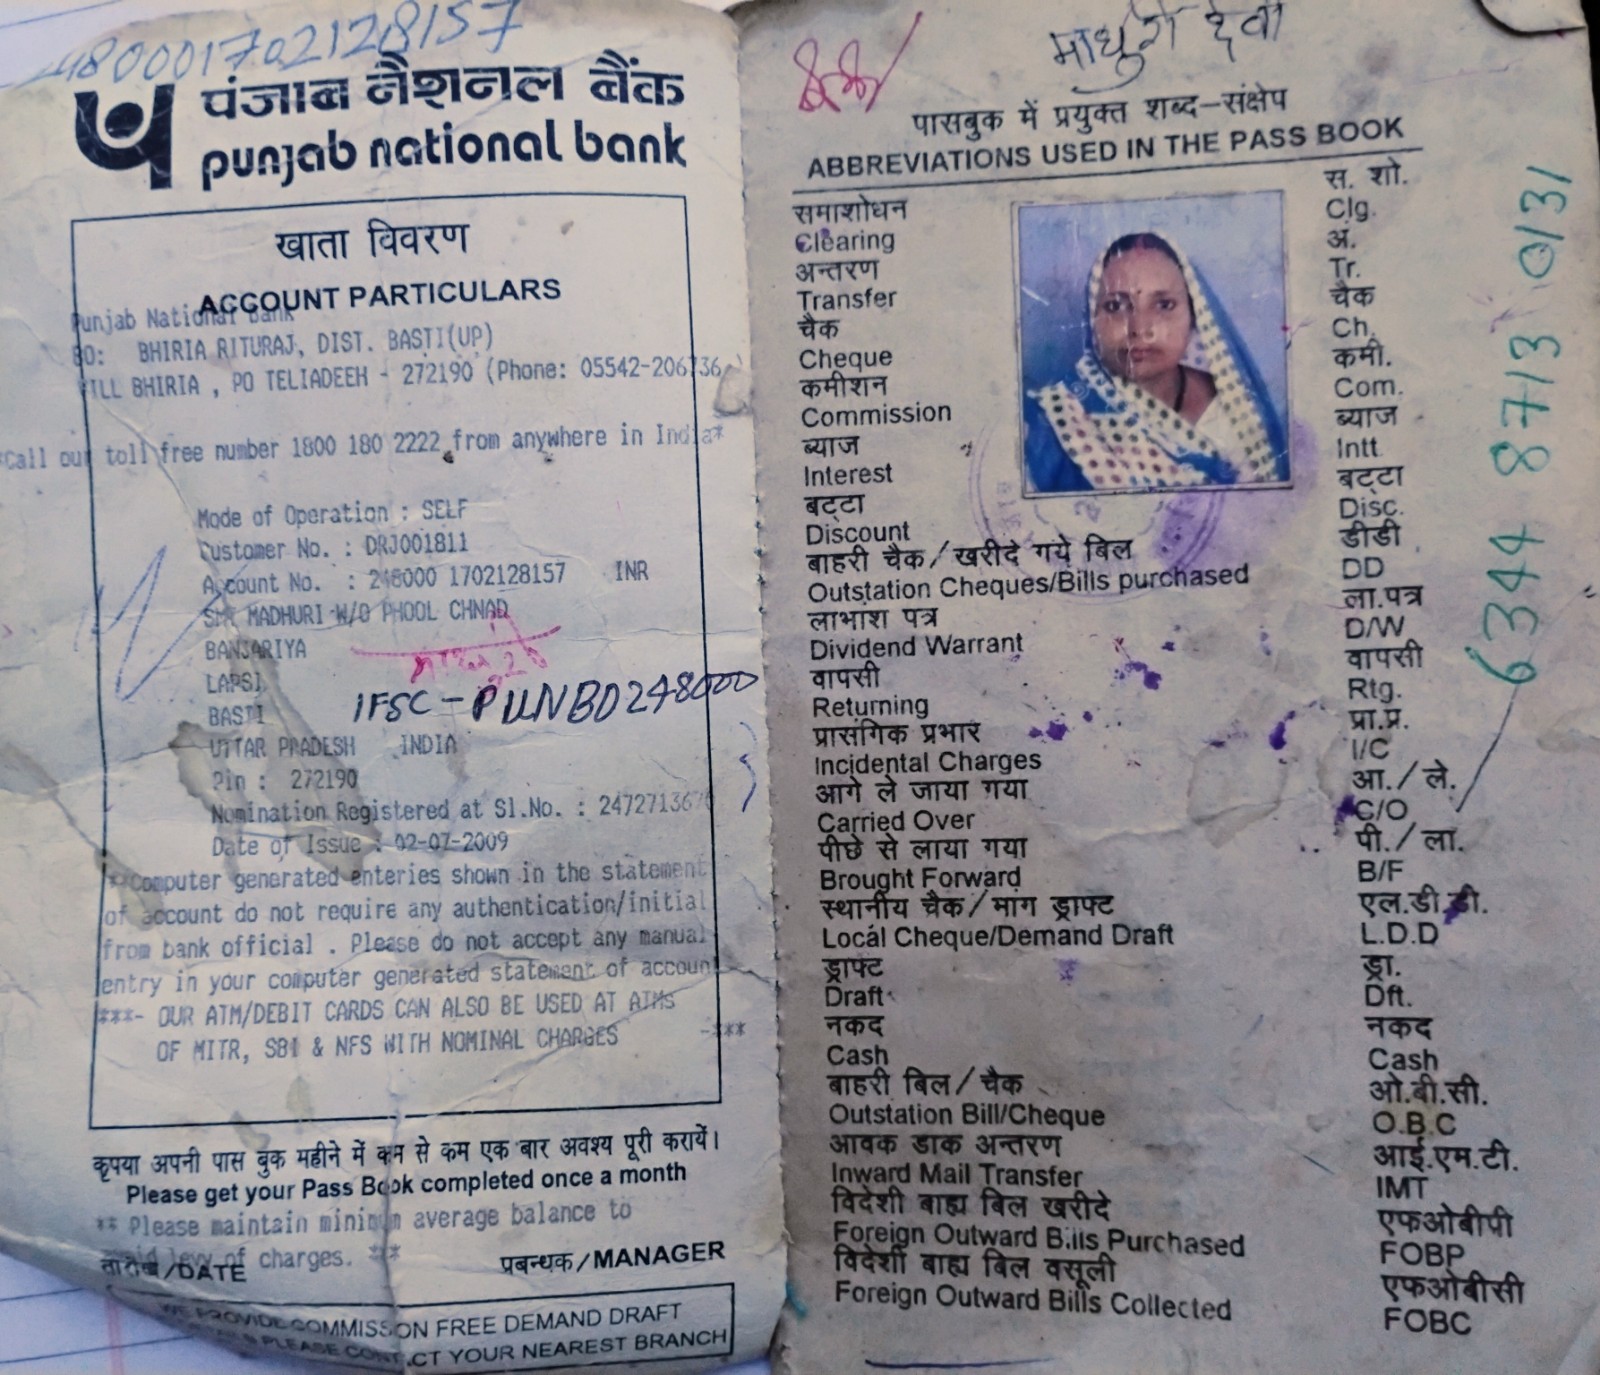 480001702128157
पंजाब नैशनल बैंक
punjab national bank
खाता विवरण
ACCOUNT PARTICULARS
Punjab National Bank
BO: BHIRIA RITURAJ, DIST. BASTI(UP)
VILL BHIRIA , PO TELIADEEH - 272190 (Phone: 05542-206736 )
*Call our toll free number 1800 180 2222 from anywhere in India*
Mode of Operation : SELF
Customer No. : DRJ001811
Account No. : 248000 1702128157 INR
SMT MADHURI W/O PHOOL CHNAD
BANJARIYA
LAPSI
IFSC - PUNB0248000
BASTI
UTTAR PRADESH INDIA
Pin : 272190
Nomination Registered at Sl.No. : 247271367
Date of Issue : 02-07-2009
**Computer generated enteries shown in the statement
of account do not require any authentication/initial
from bank official . Please do not accept any manual
entry in your computer generated statement of account
***- OUR ATM/DEBIT CARDS CAN ALSO BE USED AT ATMs
OF MITR, SBI & NFS WITH NOMINAL CHARGES -***
कृपया अपनी पास बुक महीने में कम से कम एक बार अवश्य पूरी करायें।
Please get your Pass Book completed once a month
** Please maintain minimum average balance to
avoid levy of charges. ***
तारीख/DATE प्रबन्धक/MANAGER
WE PROVIDE COMMISSION FREE DEMAND DRAFT
PLEASE CONTACT YOUR NEAREST BRANCH
माधुरी देवी
पासबुक में प्रयुक्त शब्द-संक्षेप
ABBREVIATIONS USED IN THE PASS BOOK
समाशोधन स. शो.
Clearing Clg.
अन्तरण अं.
Transfer Tr.
चैक चैक
Cheque Ch.
कमीशन कमी.
Commission Com.
ब्याज ब्याज
Interest Intt.
बट्टा बट्टा
Discount Disc.
बाहरी चैक/खरीदे गये बिल डीडी
Outstation Cheques/Bills purchased DD
लाभांश पत्र ला.पत्र
Dividend Warrant D/W
वापसी वापसी
Returning Rtg.
प्रासंगिक प्रभार प्रा.प्र.
Incidental Charges I/C
आगे ले जाया गया आ./ले.
Carried Over C/O
पीछे से लाया गया पी./ला.
Brought Forward B/F
स्थानीय चैक/मांग ड्राफ्ट एल.डी.डी.
Local Cheque/Demand Draft L.D.D
ड्राफ्ट ड्रा.
Draft Dft.
नकद नकद
Cash Cash
बाहरी बिल/चैक ओ.बी.सी.
Outstation Bill/Cheque O.B.C
आवक डाक अन्तरण आई.एम.टी.
Inward Mail Transfer IMT
विदेशी बाह्य बिल खरीदे एफओबीपी
Foreign Outward Bills Purchased FOBP
विदेशी बाह्य बिल वसूली एफओबीसी
Foreign Outward Bills Collected FOBC
6344 8713 10/31